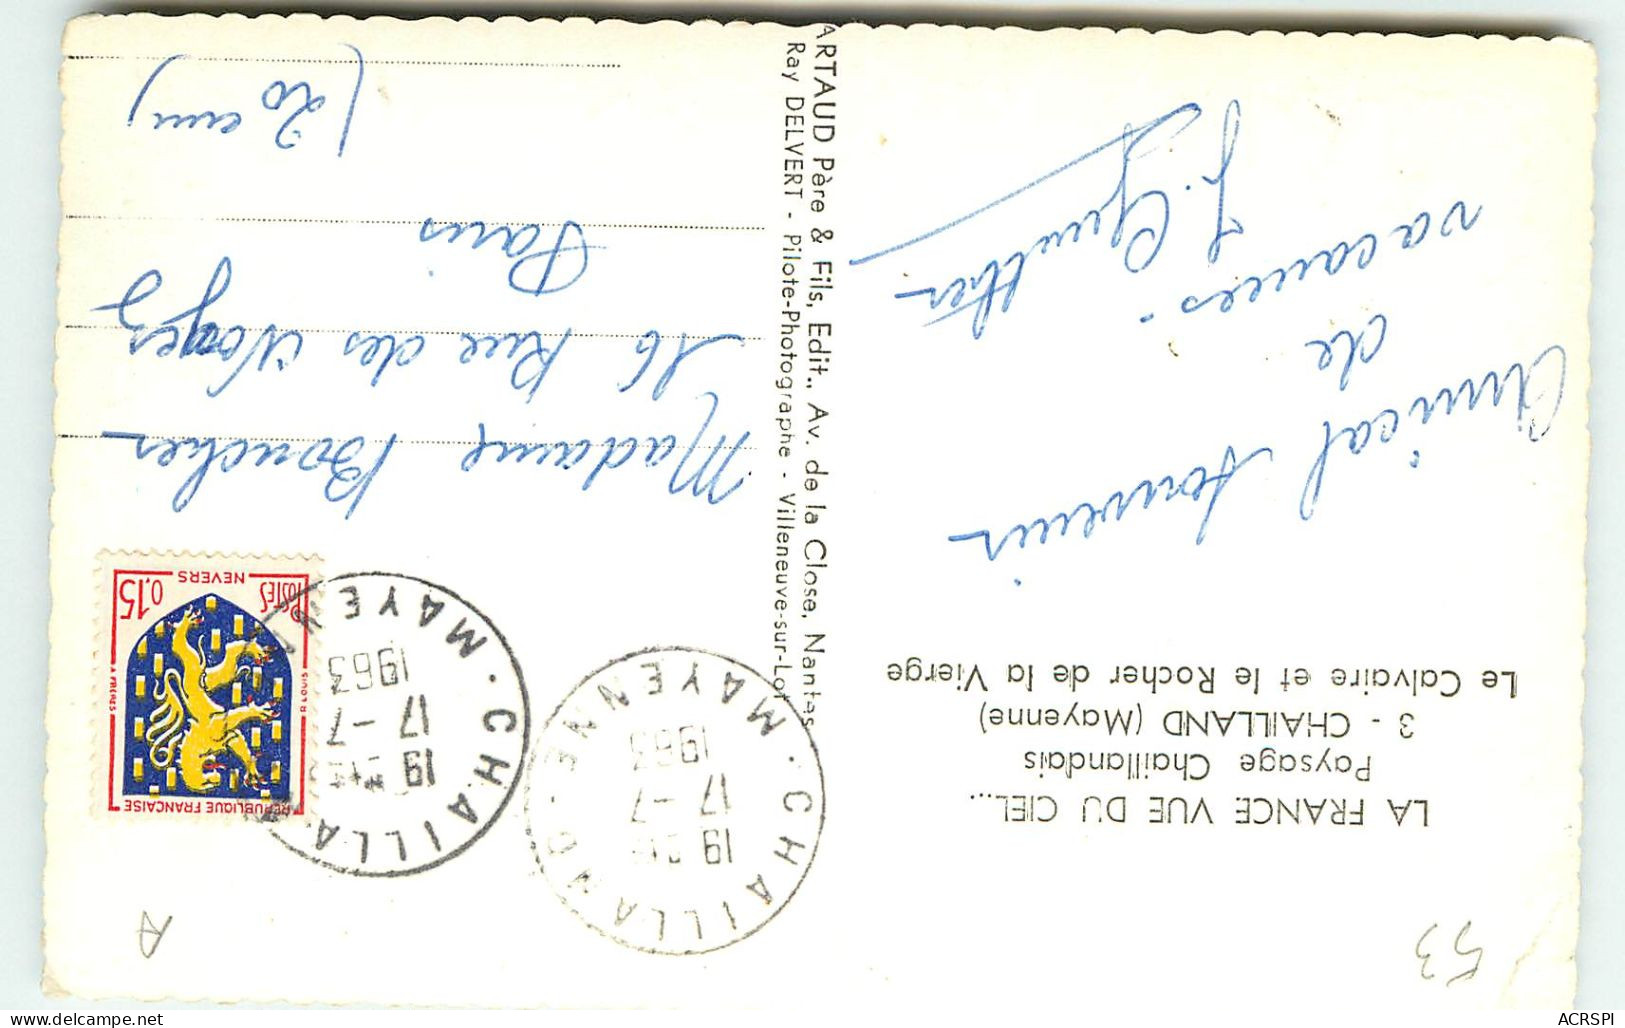 LA FRANCE VUE DU CIEL...
Paysage Chaillandais
3 - CHAILLAND (Mayenne)
Le Calvaire et le Rocher de la Vierge
Amical souvenir
de
vacances.
J. Gunther
ARTAUD Père & Fils, Edit., Av. de la Close, Nantes
Ray DELVERT - Pilote-Photographe - Villeneuve-sur-Lot
RÉPUBLIQUE FRANÇAISE
POSTES
0,15
NEVERS
CHAILLAND · MAYENNE ·
19
17 - 7
1963
CHAILLAND · MAYENNE
19
17 - 7
1963
Madame Boucher
16 Rue des
Paris
(20 em)
53
A
www.delcampe.net
ACRSPI